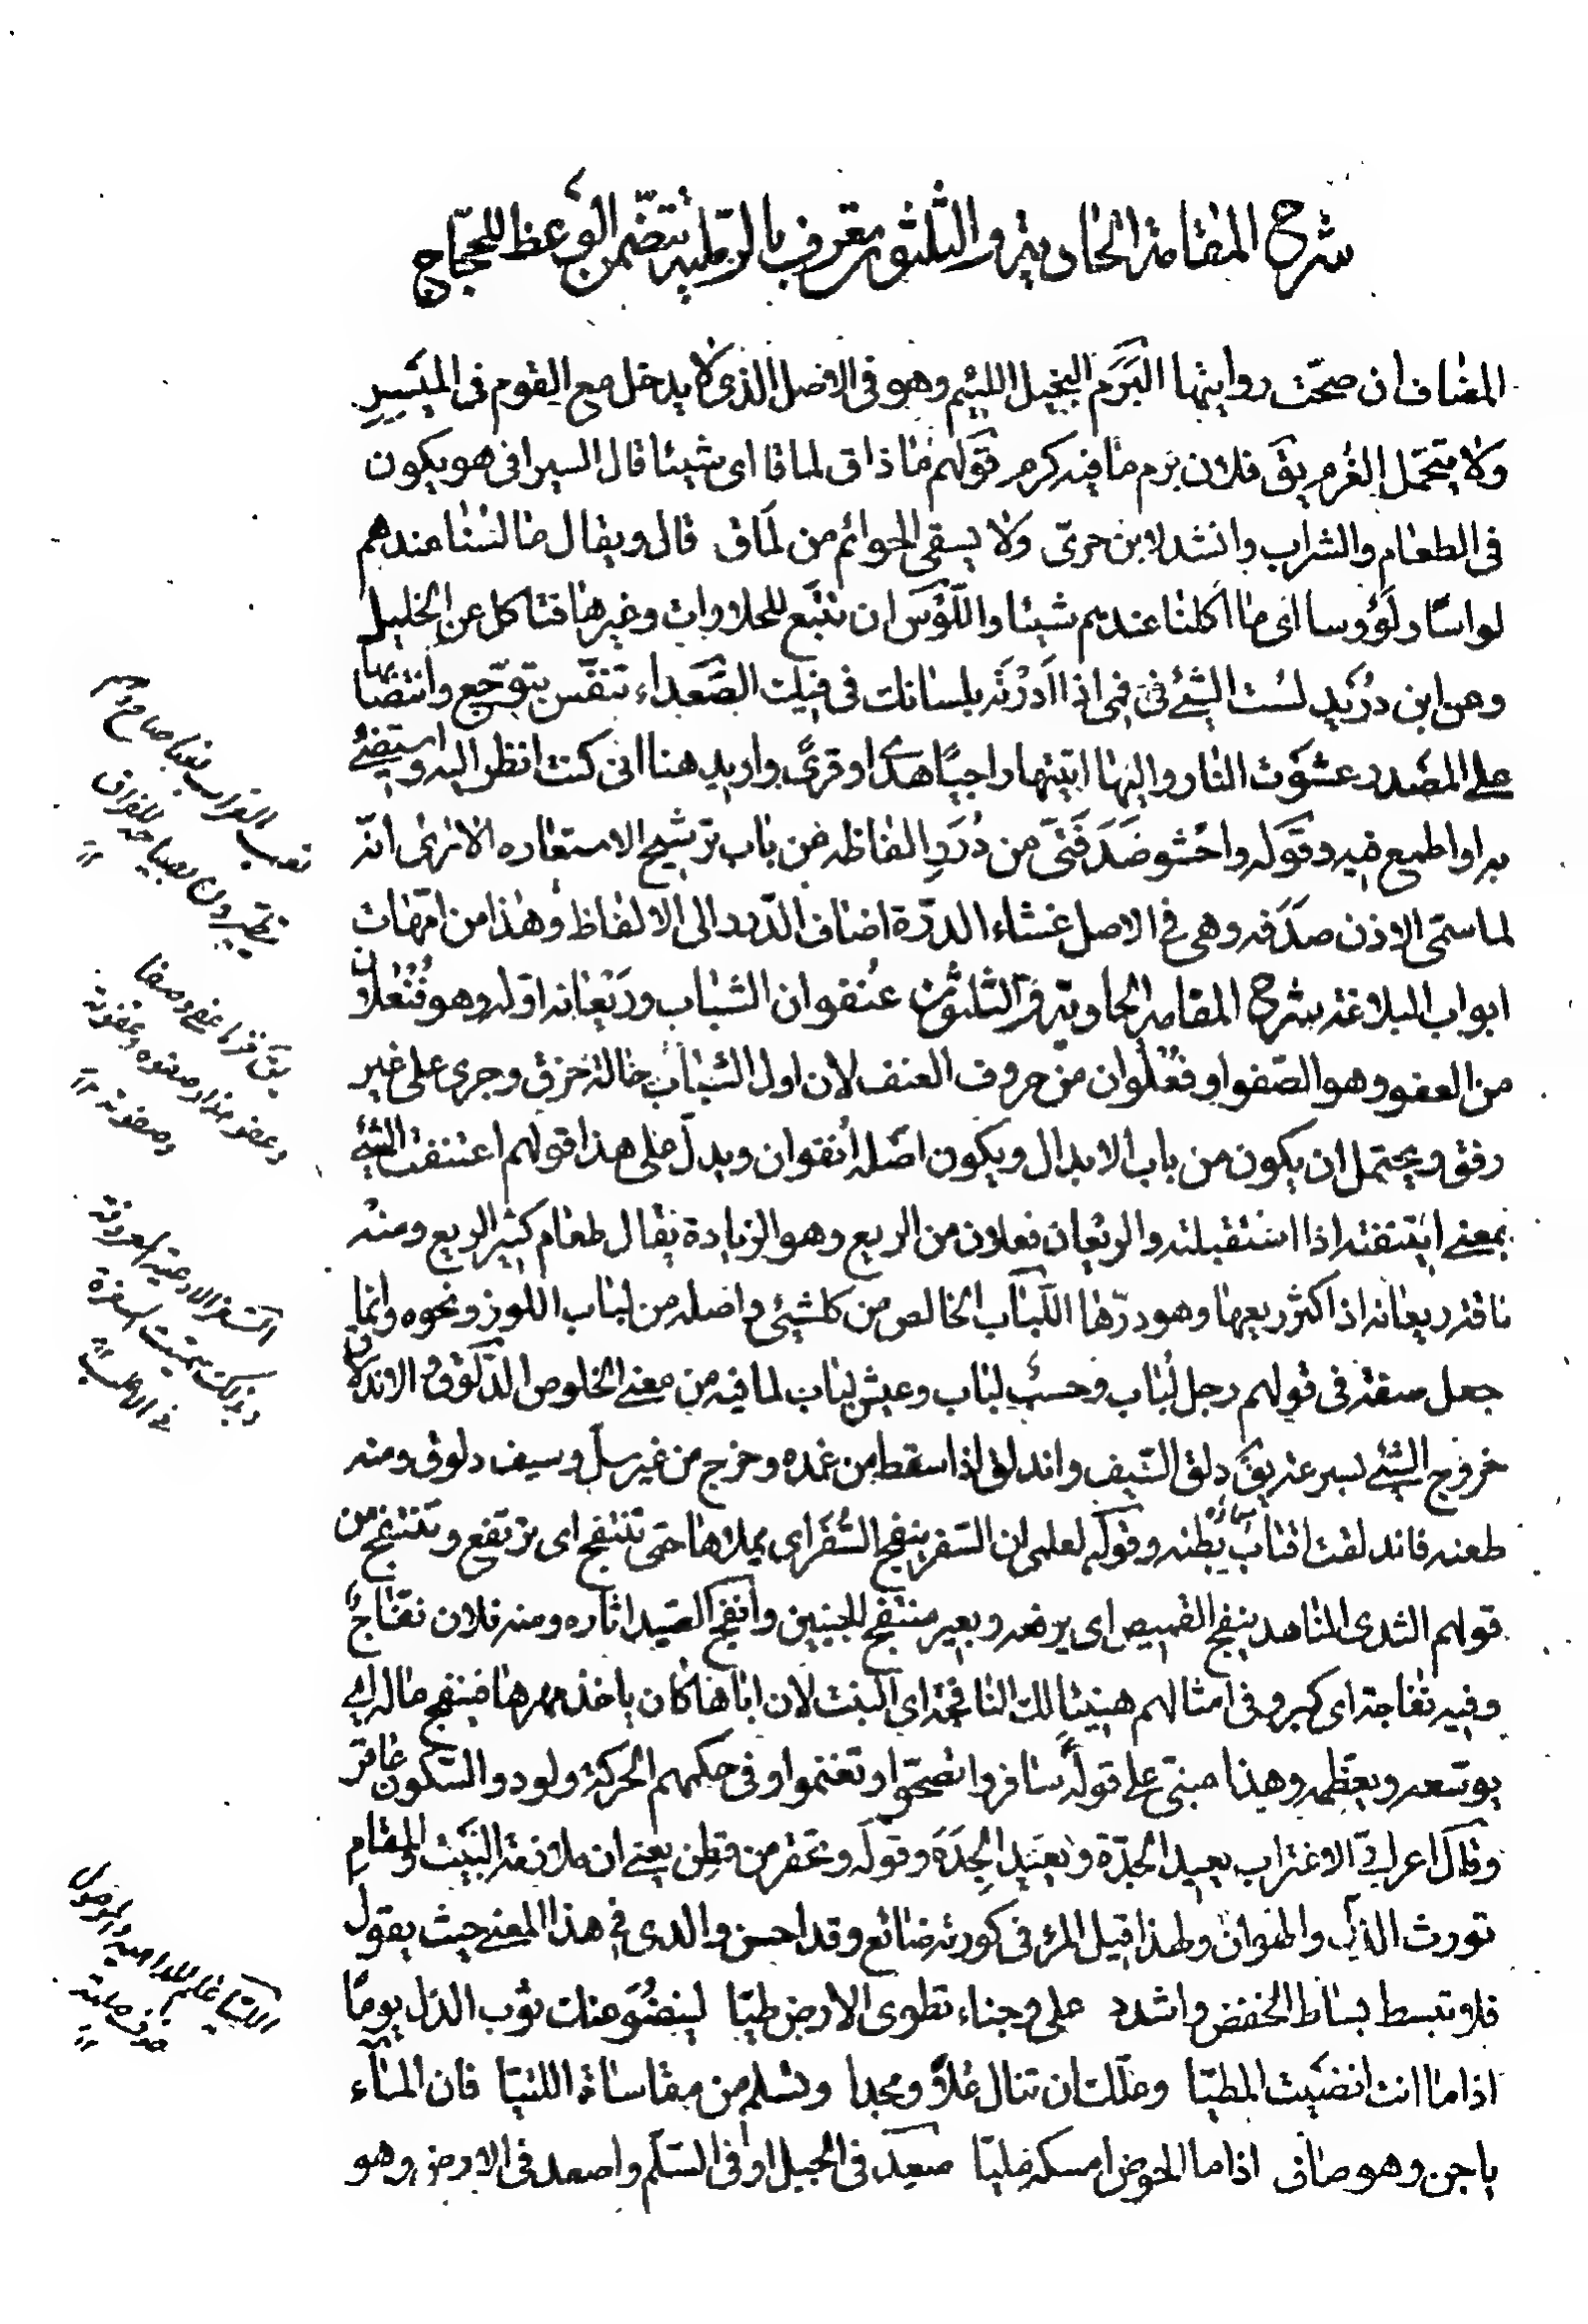 شرح المقامة الحادية والثلثون تعرف بالرملية تتضمن الوعظ للحجاج
المضاف ان صحّت روايتها البَرَم البخيل اللئيم وهو فى الاصل الذى لا يدخل مع القوم فى الميسر
ولا يتحمّل الغُرم يقَ فلان برم ما فيه كرم قولهم ما ذاق لماقا اى شيئا قال السيرافى هو يكون
فى الطعام والشراب وانشد لابن حرىّ ولا يسقى الحوائم من لَماق قال ويقال ما لسنا عندهم
لواسًا ولؤوسا اى ما اكلنا عندهم شيئا واللَّوْس ان تتبّع للحلاوات وغيرها فتاكل عن الخليل
وعن ابن دُرَيد لست الشئ فى فمى اذا ادرته بلسانك فى فيك الصُّعَداء تنفّس بتوجّع وانتصابها
على المصدر عشَوت النار واليها اتيتها راجيًا هدًى او قِرىً واريد هنا انى كنت انظر اليه واستضئ
به او اطمع فيه وقوله واحشو صَدَفَتىّ من دُرَرِ الفاظه من باب ترشيح الاستعاره الا ترى انّه
لما سمّى الاذن صدَفه وهى فى الاصل غشاء الدرّة اضاف الدرر الى الالفاظ وهذا من امّهات
ابواب البلاغة شرح المقامة الحادية والثلثون عُنفوان الشباب ورَيْعانه اوله وهو فُنْعُلان
من العفو وهو الصّفو او فُعْلُوان من حروف العنف لان اول الشباب حالة خرق وجرى على غير
رفق ويحتمل ان يكون من باب الابدال ويكون اصله اُنفوان ويدلّ على هذا قولهم اعتنفت الشئ
بمعنى ايتنفته اذا استقبلته والريعان فعلان من الريع وهو الزيادة يقال طعام كثير الريع ومنه
ناقة ريعانه اذا اكثر ريعها وهو درّها اللُّباب الخالص من كل شئ واصله من لباب اللوز ونحوه وانما
جعل صفة فى قولهم رجل لُباب وحسبُ لباب وعيش لباب لما فيه من معنى الخلوص الدّلوق والاندلاق
خروج الشئ بسرعة يقَ دلق السّيف واندلق اذا سقط من غمده وخرج من غير سلّ وسيف دلوق ومنه
طعنه فاندلقت اقتاب بطنه وقوله لعلمى ان السّفر ينفج السُّفَر اى يملاها حتى تنتفج اى ترتفع وتنتفخ من
قولهم الثدى الناهد ينفج القميص اى يرفعه وبعير منتفج الجنبين وانفج الصّيد اثاره ومنه فلان نفّاج
وفيه نفاجة اى كبر وفى امثالهم هنيئا لك النافجة اى البنت لان اباها كان ياخذ مهرها فينفج ماله اى
يوسّعه ويعظّمه وهذا مبنى على قوله سافروا تصحّوا وتغنموا وفى حكمهم الحركة ولود والسّكون عاقر
وقال اعرابىّ الاغتراب يعيد الجدّة ويفيد الجِدَة وقوله وتحقر من قطن يعنى ان ملازمة البيت والمقام
تورث الذلّ والهوان ولهذا قيل المرء فى كورته ضائع وقد احسن والدى فى هذا المعنى حيث يقول
فلا تبسط بساط الخفض واشدد على وجناء تطوى الارض طيّا لينضُوَ عنك ثوب الذل يومًا
اذا ما انت انضيت المطيّا وعلّك ان تنال عُلاً ومجدا وتسلم من مقاساة اللتيّا فان الماء
ياجن وهو صاف اذا ما الحوض امسكه مليّا صعِد فى الجبل او فى السّلّم واصعد فى الارض وهو
نعب الغراب نعبا صاح وهم
يتطيّرون بصياحه للفراق
يقَ خذ ما عفى وصفا
وعفو هذا وصفوه وعفوته
وصفوته
السفر الاوعية المعروفة
وبذلك سميت السفرة
فى الاصل
اللتيا علم للداهية والموصول
حذف صلته